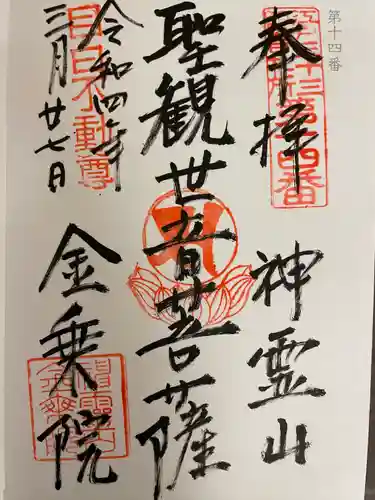 第十四番
奉拝
神霊山
聖観世音菩薩
令和四年
三月廿七日
目白不動尊
金乗院